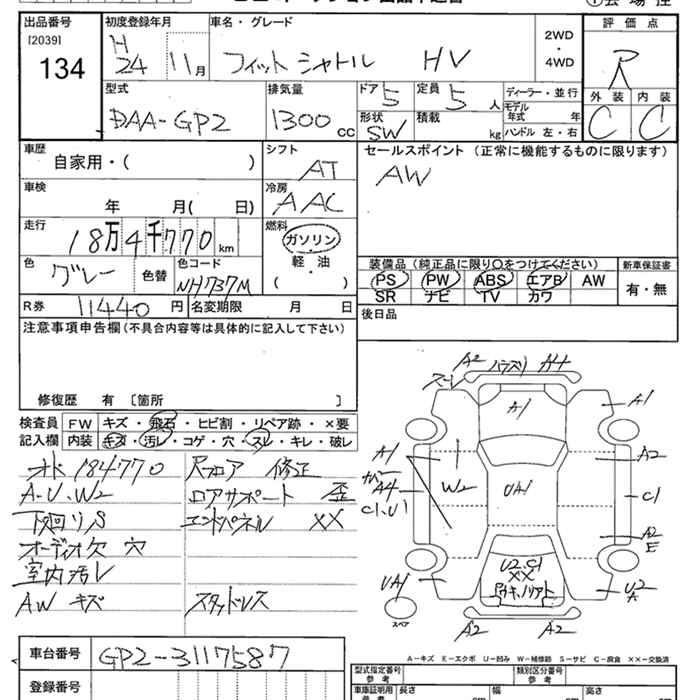 出品番号
[2039]
134
初度登録年月
H
24 11月
車名・グレード
フィットシャトル HV
2WD
・
4WD
評価点
R
外装 内装
C C
型式
DAA-GP2
排気量
1300 cc
ドア 5
定員 5 人
形状 SW
積載 kg
ディーラー・並行
モデル
年式 年
ハンドル 左・右
車歴
自家用・( )
シフト
AT
セールスポイント (正常に機能するものに限ります)
AW
車検
年 月( 日)
冷房
AAC
走行
18万4千770 km
燃料
ガソリン
軽・油
( )
色
グレー
色替
色コード
NH737M
装備品 (純正品に限り○をつけてください)
PS PW ABS エアB AW
SR ナビ TV カワ
新車保証書
有・無
R券 11440 円
名変期限 月 日
後日品
注意事項申告欄 (不具合内容等は具体的に記入して下さい)
修復歴 有 〔箇所 〕
検査員
記入欄
FW キズ・飛石・ヒビ割・リペア跡・×要
内装 キズ・汚レ・コゲ・穴・スレ・キレ・破レ
184770
A-U、W2
下廻り S
オーディオ欠 穴
室内汚レ
AW キズ
Rフロア 修正
ロアサポート 歪
エンドパネル ××
スタッドレス
A2 A4
A1
A1
A1
A4
C1、U1
W2
UA1
A2
C1
A2
E
U2、C1
××
UA1
U2
A
スペア
A2 A2
A-キズ E-エクボ U-凹み W-補修跡 S-サビ C-腐食 ××-交換済
車台番号 GP2-3117587
登録番号
型式指定番号
参考
類別区分番号
参考
車庫証明用
参考
長さ cm
幅 cm
高さ cm